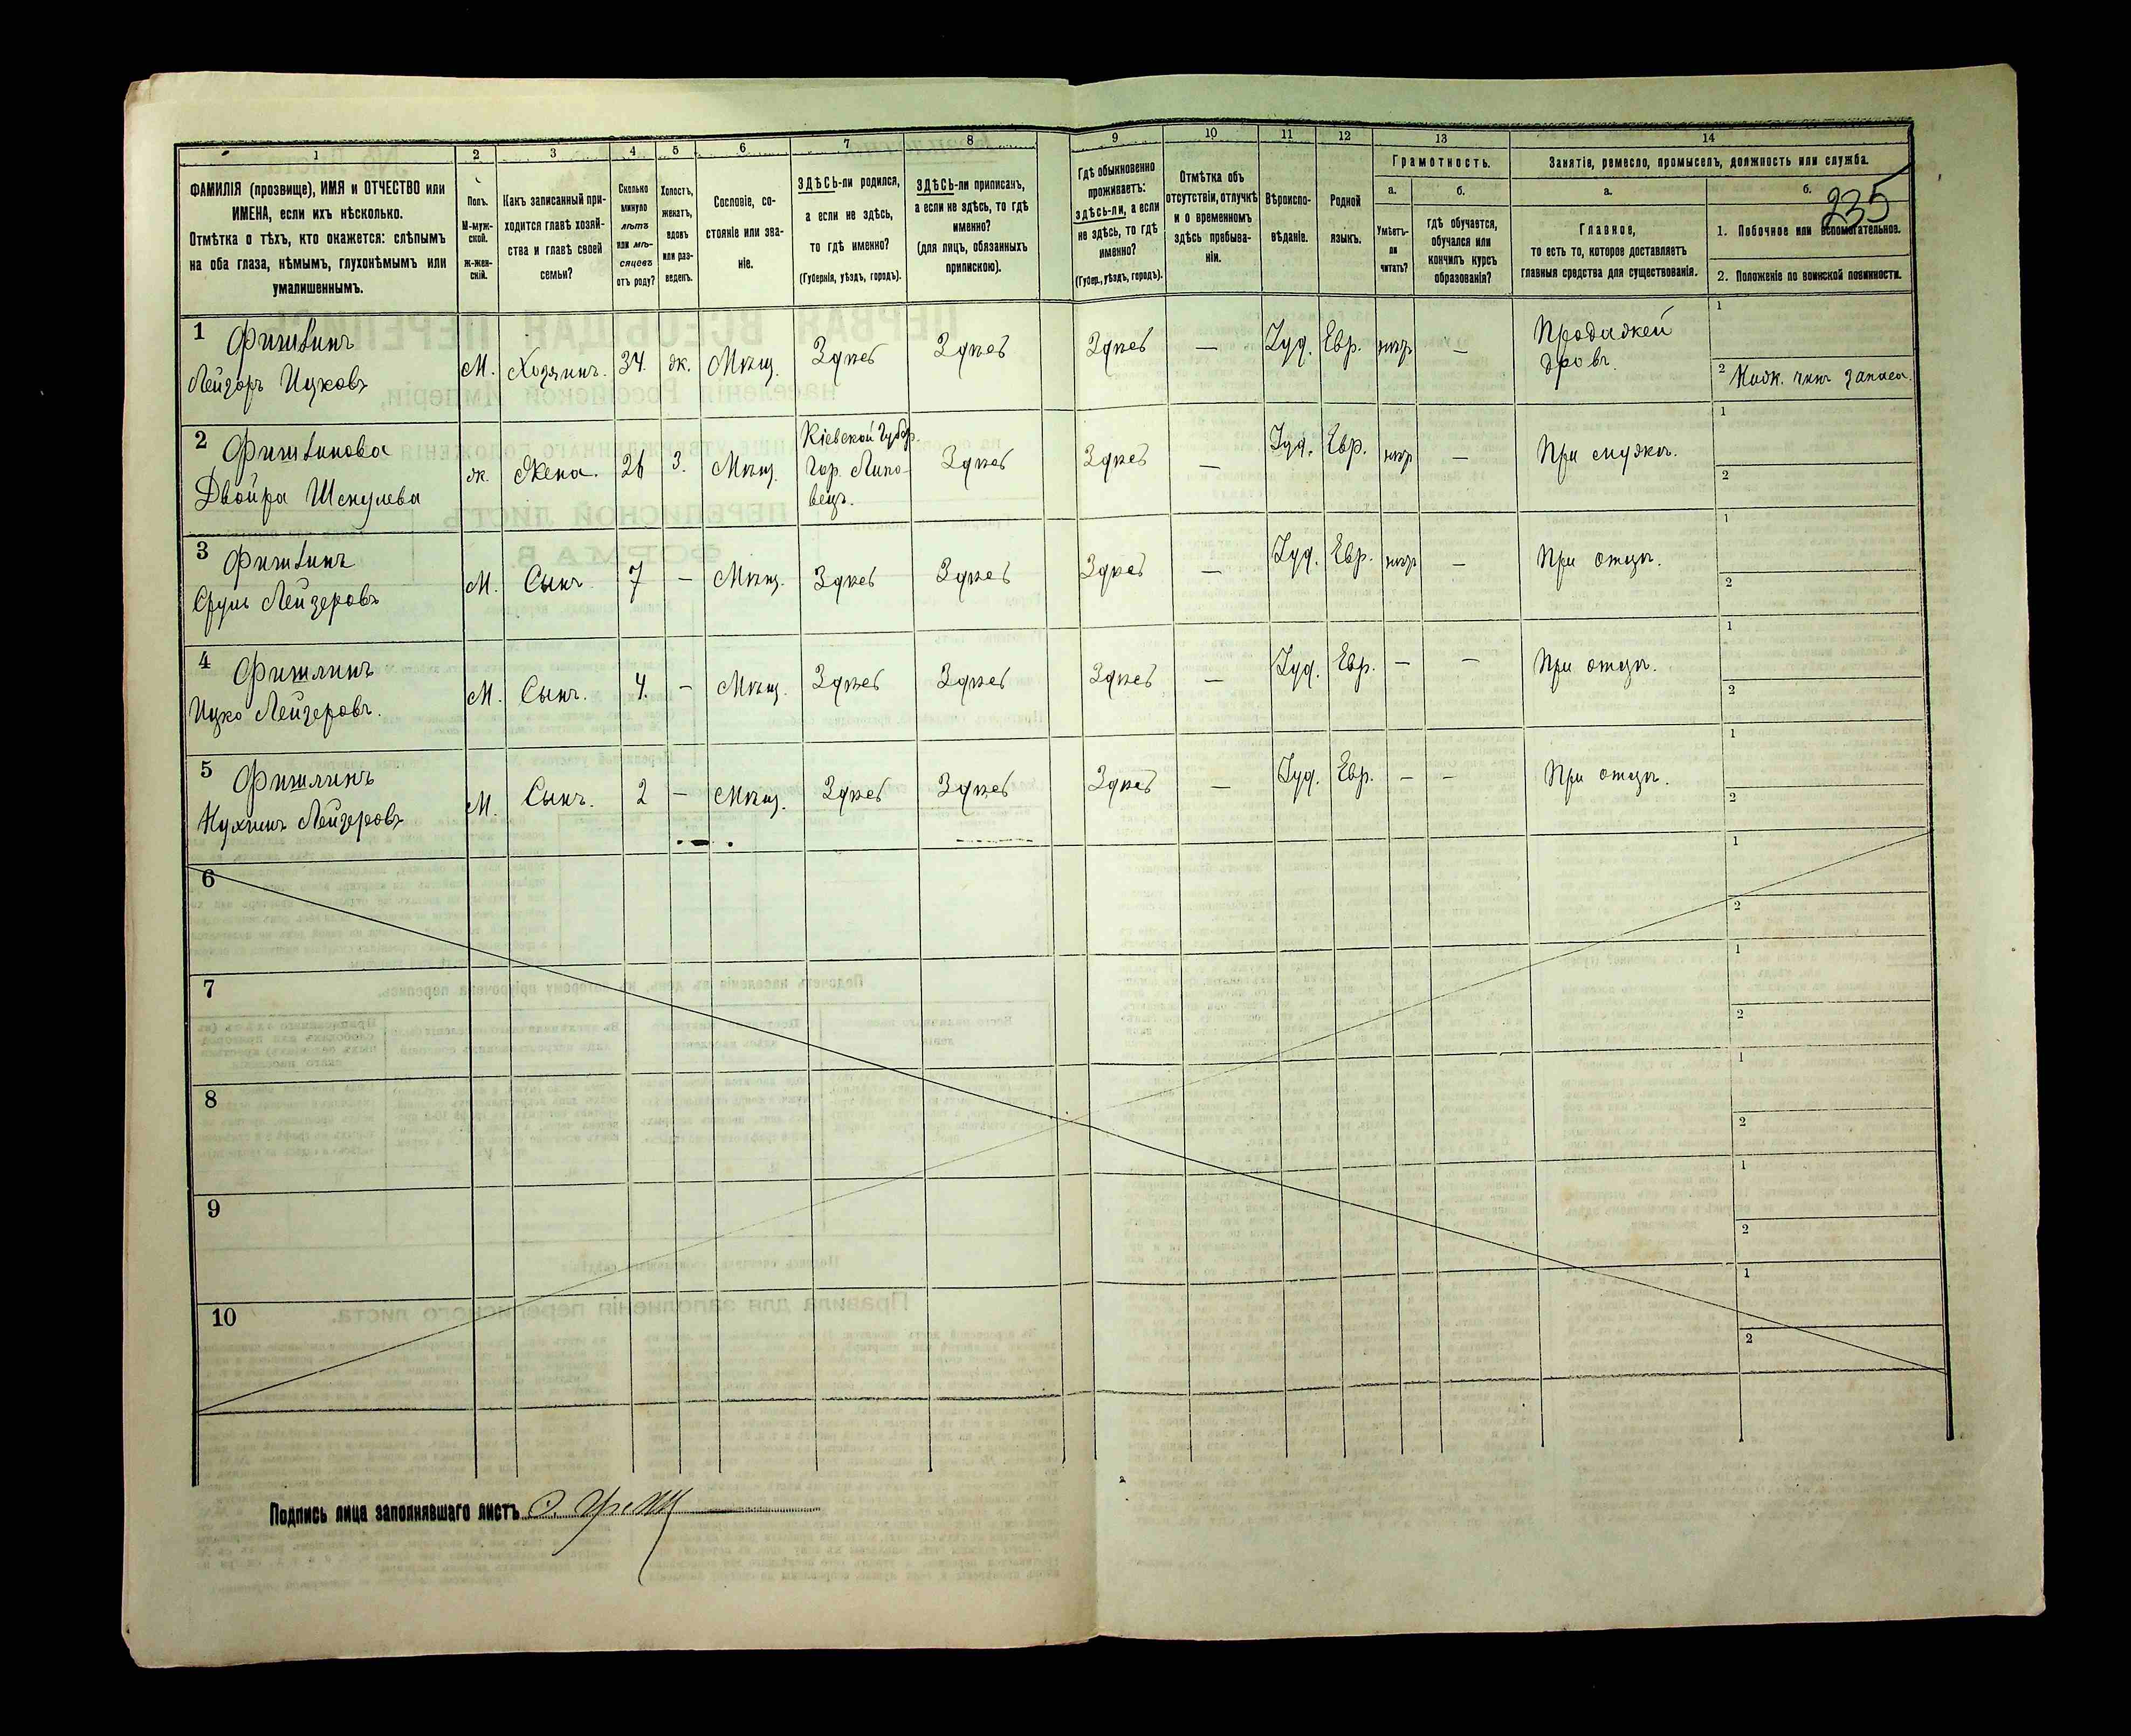 1 2 3 4 5 6 7 8 9 10 11 12 13 14
235
ФАМИЛІЯ (прозвище), ИМЯ и ОТЧЕСТВО или
ИМЕНА, если ихъ нѣсколько.
Отмѣтка о тѣхъ, кто окажется: слѣпымъ
на оба глаза, нѣмымъ, глухонѣмымъ или
умалишеннымъ.
Полъ.
М-муж-
ской.
ж-жен-
скій.
Какъ записанный при-
ходится главѣ хозяй-
ства и главѣ своей
семьи?
Сколько
минуло
лѣтъ
или мѣ-
сяцевъ
отъ роду?
Холостъ,
женатъ,
вдовъ
или раз-
веденъ.
Сословіе, со-
стояніе или зва-
ніе.
ЗДѢСЬ-ли родился,
а если не здѣсь,
то гдѣ именно?
(Губернія, уѣздъ, городъ).
ЗДѢСЬ-ли приписанъ,
а если не здѣсь, то гдѣ
именно?
(для лицъ, обязанныхъ
припискою).
Гдѣ обыкновенно
проживаетъ:
здѣсь-ли, а если
не здѣсь, то гдѣ
именно?
(Губер., уѣздъ, городъ).
Отмѣтка объ
отсутствіи, отлучкѣ
и о временномъ
здѣсь пребыва-
ніи.
Вѣроиспо-
вѣданіе.
Родной
языкъ.
Грамотность.
а.
Умѣетъ-
ли
читать?
б.
гдѣ обучается,
обучался или
кончилъ курсъ
образованія?
Занятіе, ремесло, промыселъ, должность или служба.
а.
Главное,
то есть то, которое доставляетъ
главныя средства для существованія.
б.
1. Побочное или вспомогательное.
2. Положеніе по воинской повинности.
1 Фишлинъ
Лейзоръ Ицковъ
М. Хозяинъ. 34. ж. Мѣщ. Здѣсь Здѣсь Здѣсь — Іуд. Евр. нѣтъ —
Продажей
дровъ.
1
2 Нижн. чинъ запаса.
2 Фишлинова
Двойра
ж. Жена. 26 З. Мѣщ.
Кіевской Губер.
Гор. Липо-
вецъ.
Здѣсь Здѣсь — Іуд. Евр. нѣтъ — При мужѣ.
1
2
3 Фишлинъ
Сруль Лейзеровъ
М. Сынъ. 7 — Мѣщ. Здѣсь Здѣсь Здѣсь — Іуд. Евр. нѣтъ — При отцѣ.
1
2
4 Фишлинъ
Ицко Лейзеровъ.
М. Сынъ. 4. — Мѣщ. Здѣсь Здѣсь Здѣсь — Іуд. Евр. — — При отцѣ.
1
2
5 Фишлинъ
Нухимъ Лейзеровъ
М. Сынъ. 2 — Мѣщ. Здѣсь Здѣсь Здѣсь — Іуд. Евр. — — При отцѣ.
1
2
6
1
2
7
1
2
8
1
2
9
1
2
10
1
2
Подпись лица заполнявшаго листъ
2